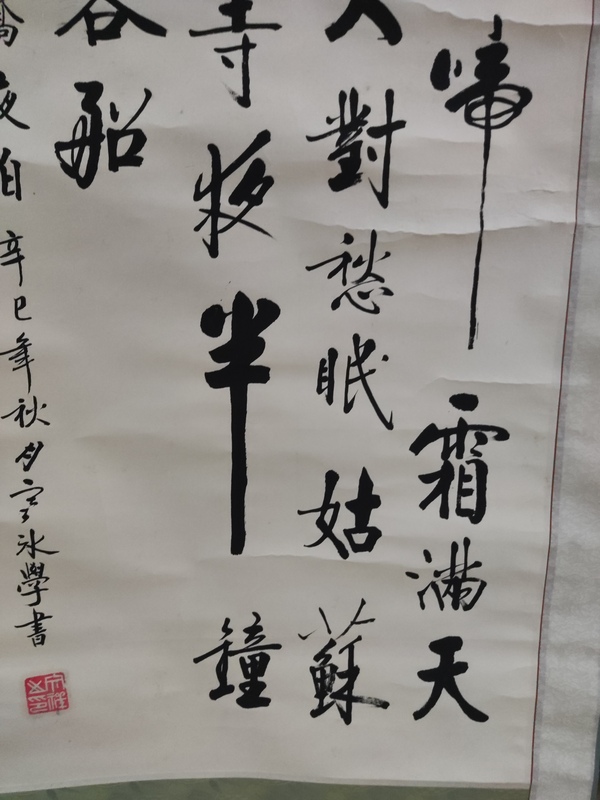 啼霜滿天
人對愁眠姑蘇
寺夜半鐘
客船
橋夜泊 辛巳年秋月 冰學書